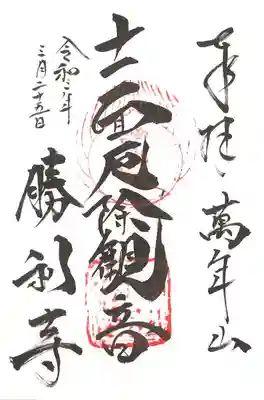 奉拝 萬年山
十一面厄除観音
勝利寺
令和二年
三月二十五日